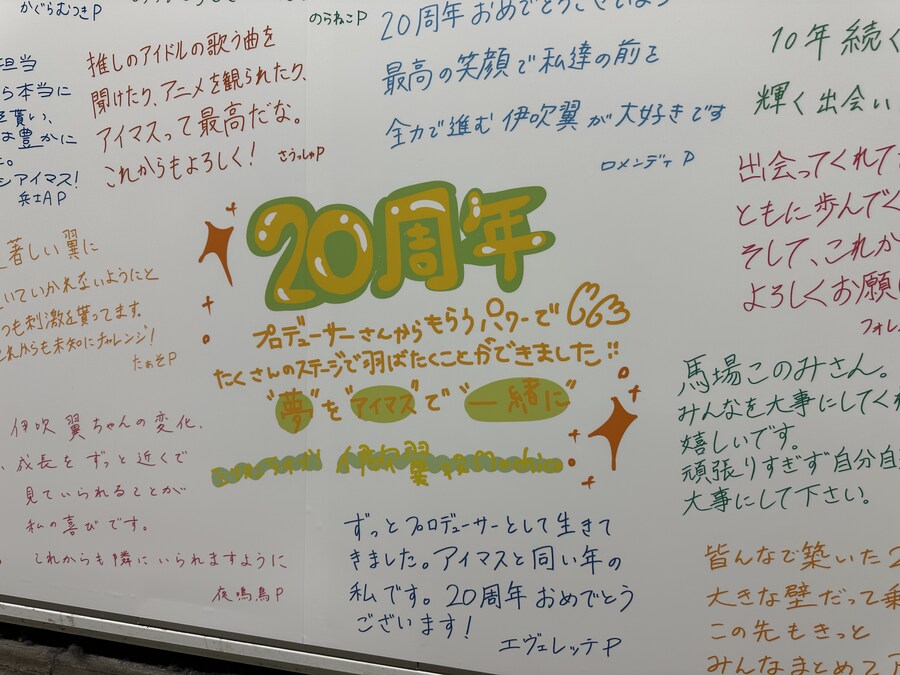 かぐらむつきP
のらねこP
推しのアイドルの歌う曲を
聞けたり、アニメを観られたり、
アイマスって最高だな。
これからもよろしく!
さうっしゅP
20周年おめでとうございます
最高の笑顔で私達の前を
全力で進む伊吹翼が大好きです
ロメンディP
10年続く
輝く出会い
担当
ら本当に
を貰い、
は豊かに
た。
アイマス!
兵士AP
著しい翼に
いていかれないようにと
つも刺激を貰ってます。
これからも未知にチャレンジ!
たぁそP
20周年
プロデューサーさんからもらうパワーで
たくさんのステージで羽ばたくことができました!!
"夢"を"アイマス"で"一緒に"
伊吹翼役Machico
出会ってくれて
ともに歩んでく
そして、これか
よろしくお願い
フォレ
馬場このみさん。
みんなを大事にしてくれ
嬉しいです。
頑張りすぎず自分自
大事にして下さい。
伊吹翼ちゃんの変化、
成長をずっと近くで
見ていられることが
私の喜びです。
これからも隣にいられますように
夜鳴鳥P
ずっとプロデューサーとして生きて
きました。アイマスと同い年の
私です。20周年おめでとう
ございます!
エヴェレッテP
皆んなで築いた2
大きな壁だって乗
この先もきっと
みんなまとめてア